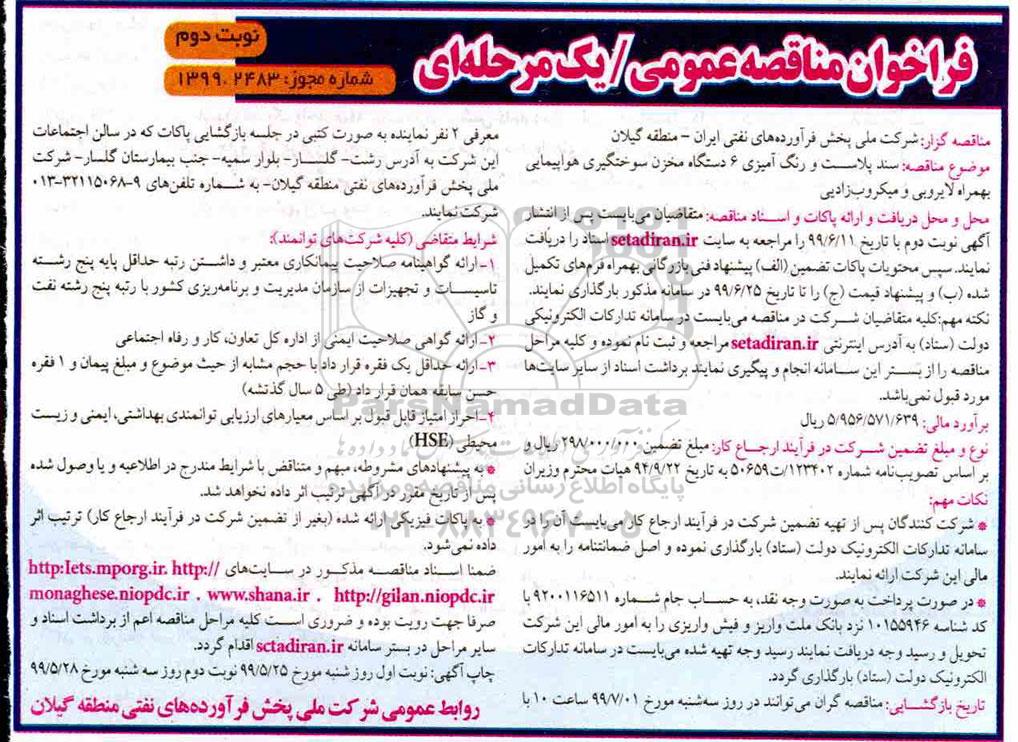 فراخوان مناقصه عمومی / یک مرحله‌ای
نوبت دوم
شماره مجوز: ۱۳۹۹.۲۴۸۳
مناقصه گزار: شرکت ملی پخش فرآورده‌های نفتی ایران - منطقه گیلان
موضوع مناقصه: سند پلاست و رنگ آمیزی ۶ دستگاه مخزن سوختگیری هواپیمایی
بهمراه لایروبی و میکروب‌زدایی
محل و محل دریافت و ارائه پاکات و اسناد مناقصه: متقاضیان می‌بایست پس از انتشار
آگهی نوبت دوم با تاریخ ۹۹/۶/۱۱ را مراجعه به سایت setadiran.ir اسناد را دریافت
نمایند. سپس محتویات پاکات تضمین (الف) پیشنهاد فنی بازرگانی بهمراه فرم‌های تکمیل
شده (ب) و پیشنهاد قیمت (ج) را تا تاریخ ۹۹/۶/۲۵ در سامانه مذکور بارگذاری نمایند.
نکته مهم: کلیه متقاضیان شرکت در مناقصه می‌بایست در سامانه تدارکات الکترونیکی
دولت (ستاد) به آدرس اینترنتی setadiran.ir مراجعه و ثبت نام نموده و کلیه مراحل
مناقصه را از بستر این سامانه انجام و پیگیری نمایند برداشت اسناد از سایر سایت‌ها
مورد قبول نمی‌باشد.
برآورد مالی: ۵/۹۵۶/۵۷۱/۶۳۹ ریال
نوع و مبلغ تضمین شرکت در فرآیند ارجاع کار: مبلغ تضمین ۲۹۸/۰۰۰/۰۰۰ ریال و
بر اساس تصویب‌نامه شماره ۱۲۳۴۰۲/ت۵۰۶۵۹ به تاریخ ۹۴/۹/۲۲ هیات محترم وزیران
نکات مهم:
* شرکت کنندگان پس از تهیه تضمین شرکت در فرآیند ارجاع کار می‌بایست آن را در
سامانه تدارکات الکترونیک دولت (ستاد) بارگذاری نموده و اصل ضمانتنامه را به امور
مالی این شرکت ارائه نمایند.
* در صورت پرداخت به صورت وجه نقد، به حساب جام شماره ۹۲۰۰۱۱۶۵۱۱ با
کد شناسه ۱۰۱۵۵۹۴۶ نزد بانک ملت واریز و فیش واریزی را به امور مالی این شرکت
تحویل و رسید وجه دریافت نمایند رسید وجه تهیه شده می‌بایست در سامانه تدارکات
الکترونیک دولت (ستاد) بارگذاری گردد.
تاریخ بازگشایی: مناقصه گران می‌توانند در روز سه‌شنبه مورخ ۹۹/۷/۰۱ ساعت ۱۰ با
معرفی ۲ نفر نماینده به صورت کتبی در جلسه بازگشایی پاکات که در سالن اجتماعات
این شرکت به آدرس رشت- گلسار- بلوار سمیه- جنب بیمارستان گلسار- شرکت
ملی پخش فرآورده‌های نفتی منطقه گیلان- به شماره تلفن‌های ۹-۳۲۱۱۵۰۶۸-۰۱۳
شرکت نمایند.
شرایط متقاضی (کلیه شرکت‌های توانمند):
۱- ارائه گواهینامه صلاحیت پیمانکاری معتبر و داشتن رتبه حداقل پایه پنج رشته
تاسیسات و تجهیزات از سازمان مدیریت و برنامه‌ریزی کشور با رتبه پنج رشته نفت
و گاز
۲- ارائه گواهی صلاحیت ایمنی از اداره کل تعاون، کار و رفاه اجتماعی
۳- ارائه حداقل یک فقره قرار داد با حجم مشابه از حیث موضوع و مبلغ پیمان و ۱ فقره
حسن سابقه همان قرار داد (طی ۵ سال گذشته)
۴- احراز امتیاز قابل قبول بر اساس معیارهای ارزیابی توانمندی بهداشتی، ایمنی و زیست
محیطی (HSE)
* به پیشنهادهای مشروطه، مبهم و متناقض با شرایط مندرج در اطلاعیه و یا وصول شده
پس از تاریخ مقرر در آگهی ترتیب اثر داده نخواهد شد.
* به پاکات فیزیکی ارائه شده (بغیر از تضمین شرکت در فرآیند ارجاع کار) ترتیب اثر
داده نمی‌شود.
ضمنا اسناد مناقصه مذکور در سایت‌های http:Iets.mporg.ir. http://
monaghese.niopdc.ir . www.shana.ir . http://gilan.niopdc.ir
صرفا جهت رویت بوده و ضروری است کلیه مراحل مناقصه اعم از برداشت اسناد و
سایر مراحل در بستر سامانه sctadiran.ir اقدام گردد.
چاپ آگهی: نوبت اول روز شنبه مورخ ۹۹/۵/۲۵ نوبت دوم روز سه شنبه مورخ ۹۹/۵/۲۸
روابط عمومی شرکت ملی پخش فرآورده‌های نفتی منطقه گیلان
ParsNamadData
پایگاه اطلاع رسانی مناقصه و مزایده
۰۲۱-۸۸۳۴۹۶۷۰-۵